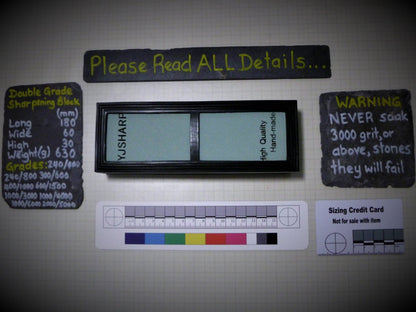 Please Read ALL Details...
Double Grade
Sharpening Block
(mm)
Long 180
Wide 60
High 30
Weight(g) 630
Grades: 240/400
240/800 300/600
400/1000 600/1500
1000/3000 2000/4000
3000/6000 2000/5000
YJSHARP
High Quality
Hand-made
WARNING
NEVER soak
3000 grit, or
above, stones
they will fail
Sizing Credit Card
Not for sale with item